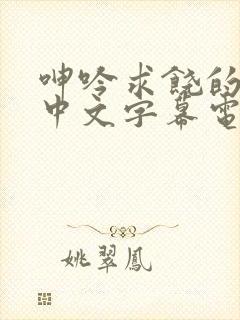 呻吟求饶的
中文字幕電
姚翠鳳